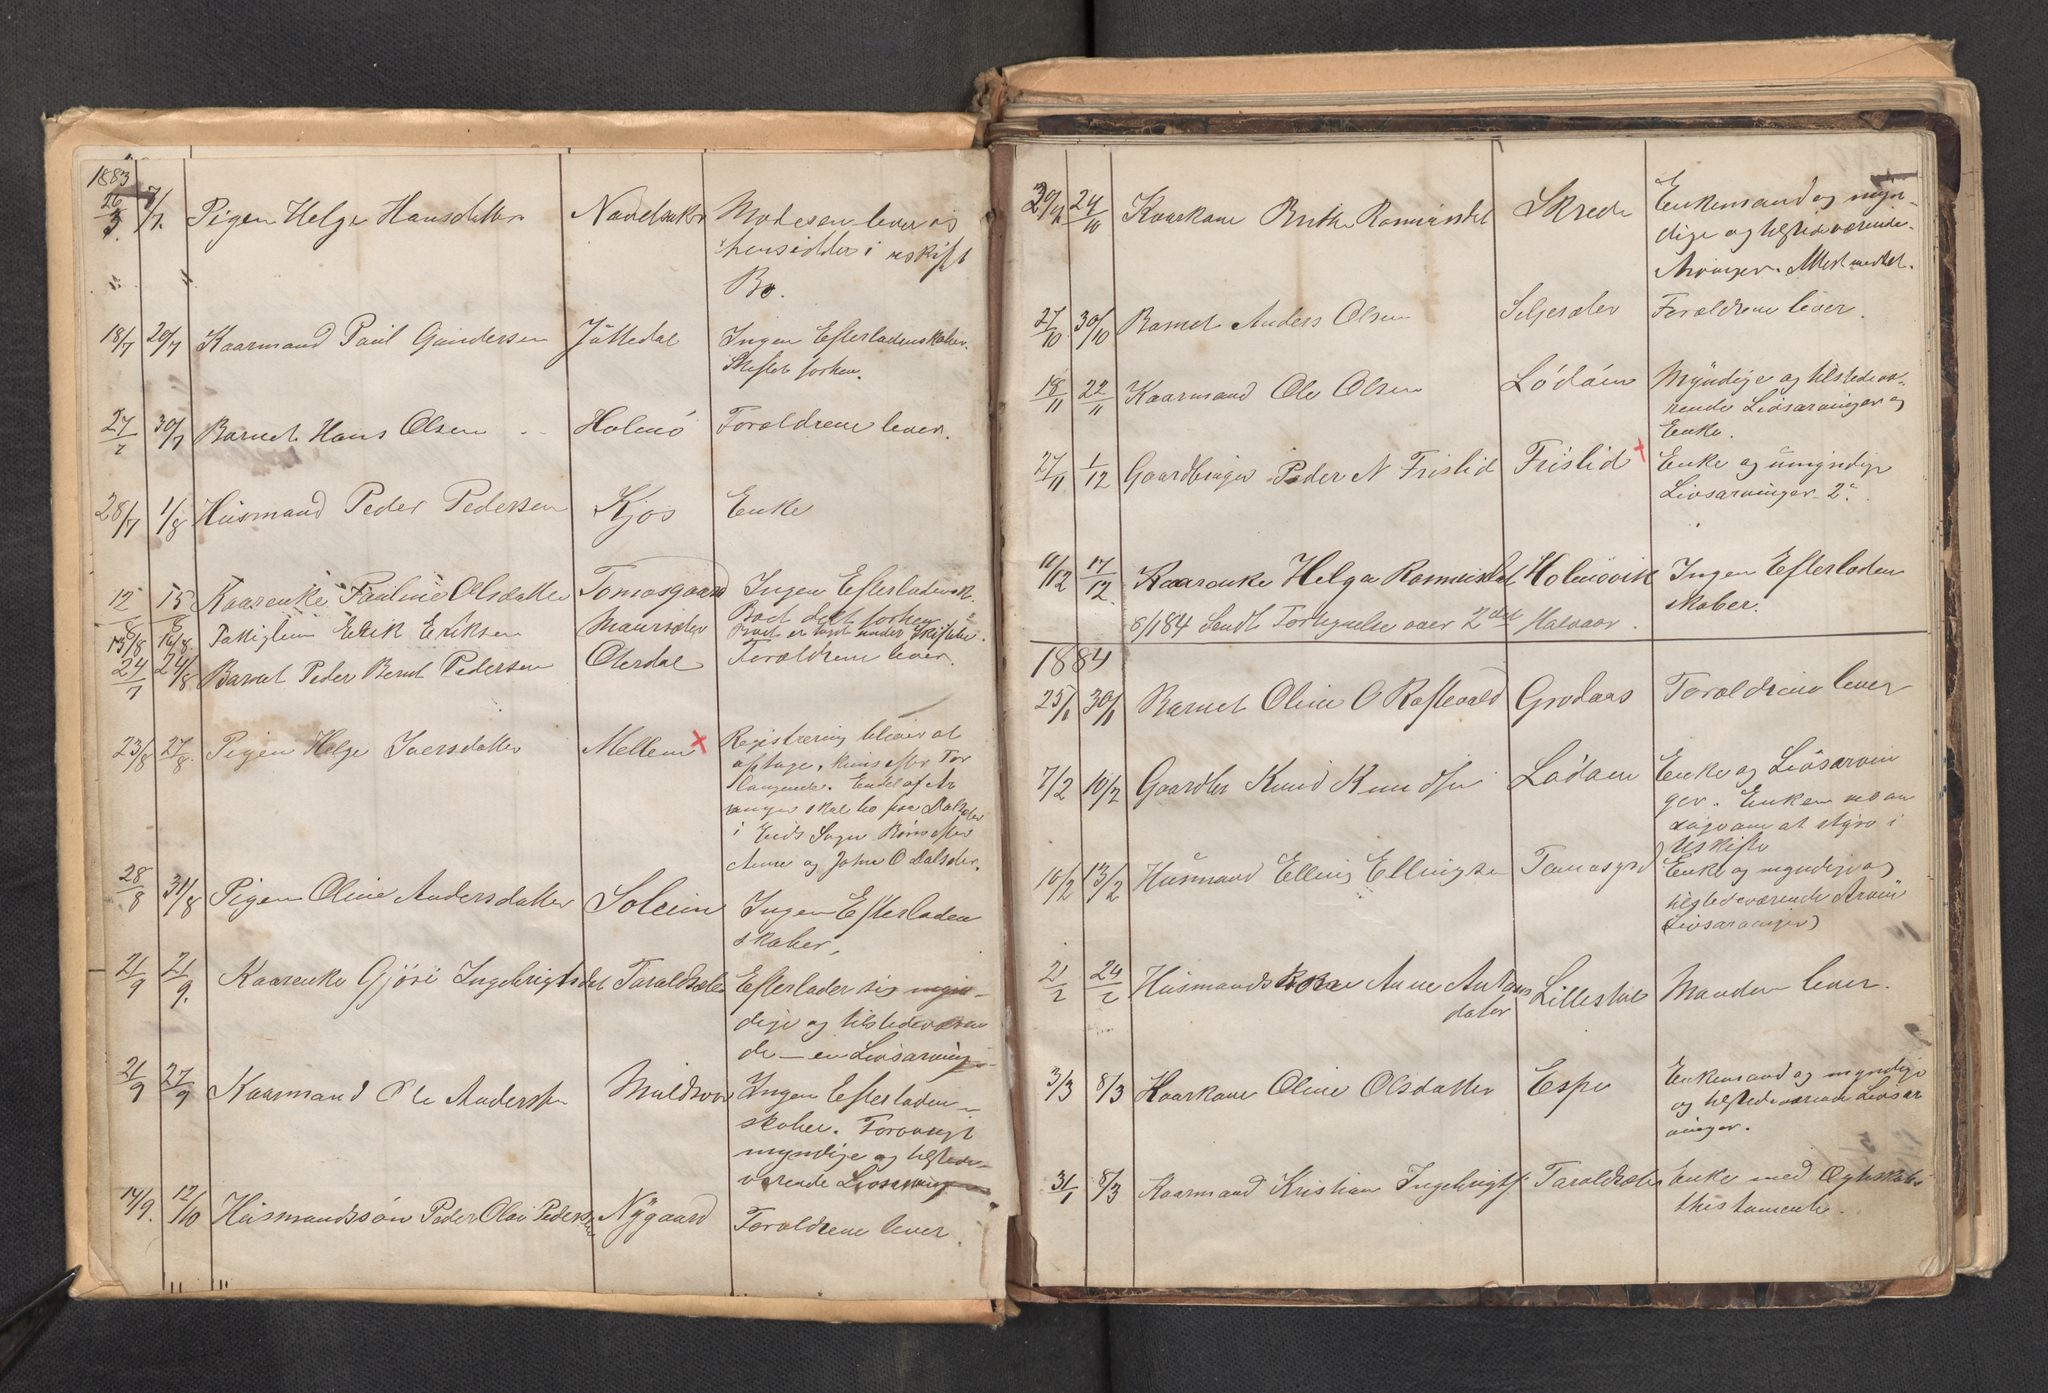 1883
26/5 7/7. Pigen Helge Hansdatter Navelsaker Moderen lever og
hensidder i uskift
Bo.
" "
18/7 20/7 Kaarmand Paul Gundersen Juttedal Ingen Efterladenskaber.
Skiftet forhen.
27/7 30/7 Barnet Hans Olsen Holmö Forældrene lever.
28/7 1/8 Husmand Peder Pedersen Kjos Enke
12/8 15/8 Kaarenke Pauline Olsdatter Tomasgaard Ingen Efterladensk.
Boet delt forhen
15/8 16/8. Fattiglem Erik Eriksen Maursæter Boet er tagt under Skifte.
24/7 24/8 Barnet Peder Bernt Pedersen Otterdal Forældrene lever.
23/8 27/8. Pigen Helge Iversdatter Mellem Registrering bliver at
optage, kuns efter For
langende. Endel af Ar
vinger skal bo paa Dalsæter
i Eids Sogn
Anne og John O Dalsæter.
28/8 31/8 Pigen Oline Andersdatter Soleim Ingen Efterladen
skaber.
21/9 21/9. Kaarenke Gjöri Ingebrigtsdat Taraldsæter Efterlader sig myn-
dige og tilstedeværen
de - en Livsarving
21/9 27/9 Kaarmand Ole Andersen Muldsvor Ingen Efterladen-
skaber. Forøvrigt
myndige og tilstede-
værende Livsarving
14/9. 12/10 Husmandssön Peder Olai Pedersen Nÿgaard Forældrene lever.
" "
20/10 24/10 Kaarkone Brithe Rasmusdat Skrede Enkemand og myn-
dige og tilstedeværende
Arvinger. Attest meddelt.
27/10 30/10 Barnet Anders Olsen Seljesæter Forældrene lever.
18/11 22/11 Kaarmand Ole Olsen Lödöen Myndige og tilstedevæ-
rende Livsarvinger og
Enke.
27/11 1/12 Gaardbruger Peder N Frislid Frislid Enke og umyndige
Livsarvinger 2.
11/12 17/12 Kaarenke Helga Rasmusdat Holmövik Ingen Efterladen
skaber.
8/1 84 Sendt Fortegnelse over 2det Halvaar.
1884
25/1 30/1 Barnet Oline O Raftevold Grodaas Forældrene lever
7/2 10/2 Gaardbr Knud Knudsen Lödöen Enke og Livsarvin
ger. Enken
at styre i
Uskifte
10/2 13/2 Husmand Elling Ellingsen Tomasgrd Enke og myndige og
tilstedeværende Arvin
(Livsarvinger)
21/2 24/2 Husmandskone Anne Antons
datter Lillestöl Manden lever.
3/3 8/3 Kaarkone Oline Olsdatter Espe Enkemand og myndige
og tilstedeværende Livsar
vinger.
31/1 8/3 Kaarmand Kristian Ingebrigts. Taraldsæter Enke med Ægteskabs-
thistamente.